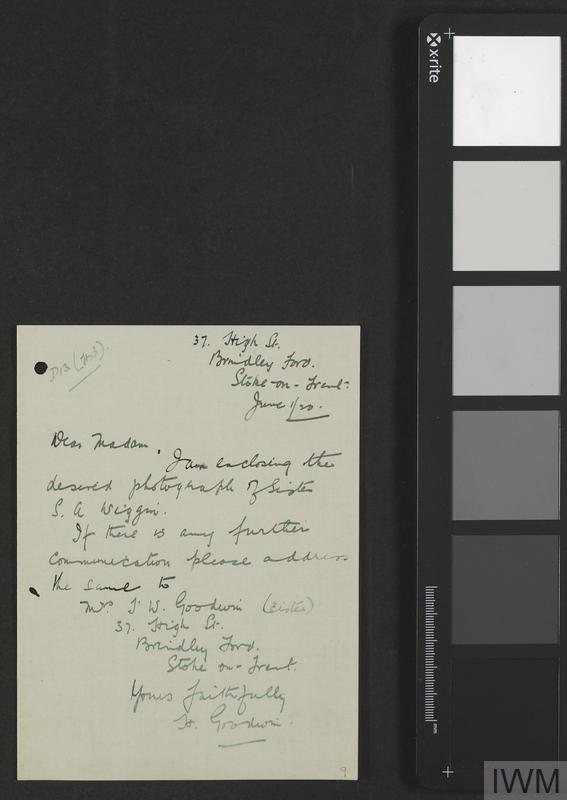 37. High St.
Brindley Ford.
Stoke-on-Trent.
June 1/20.
Dear Madam.
I am enclosing the
desired photograph of Sister
S. A Wiggin.
If there is any further
communication please address
the same to
Mrs. J. W. Goodwin (Sister)
37. High St.
Brindley Ford.
Stoke on-Trent.
Yours faithfully
H. Goodwin.
9
x-rite
mm
IWM